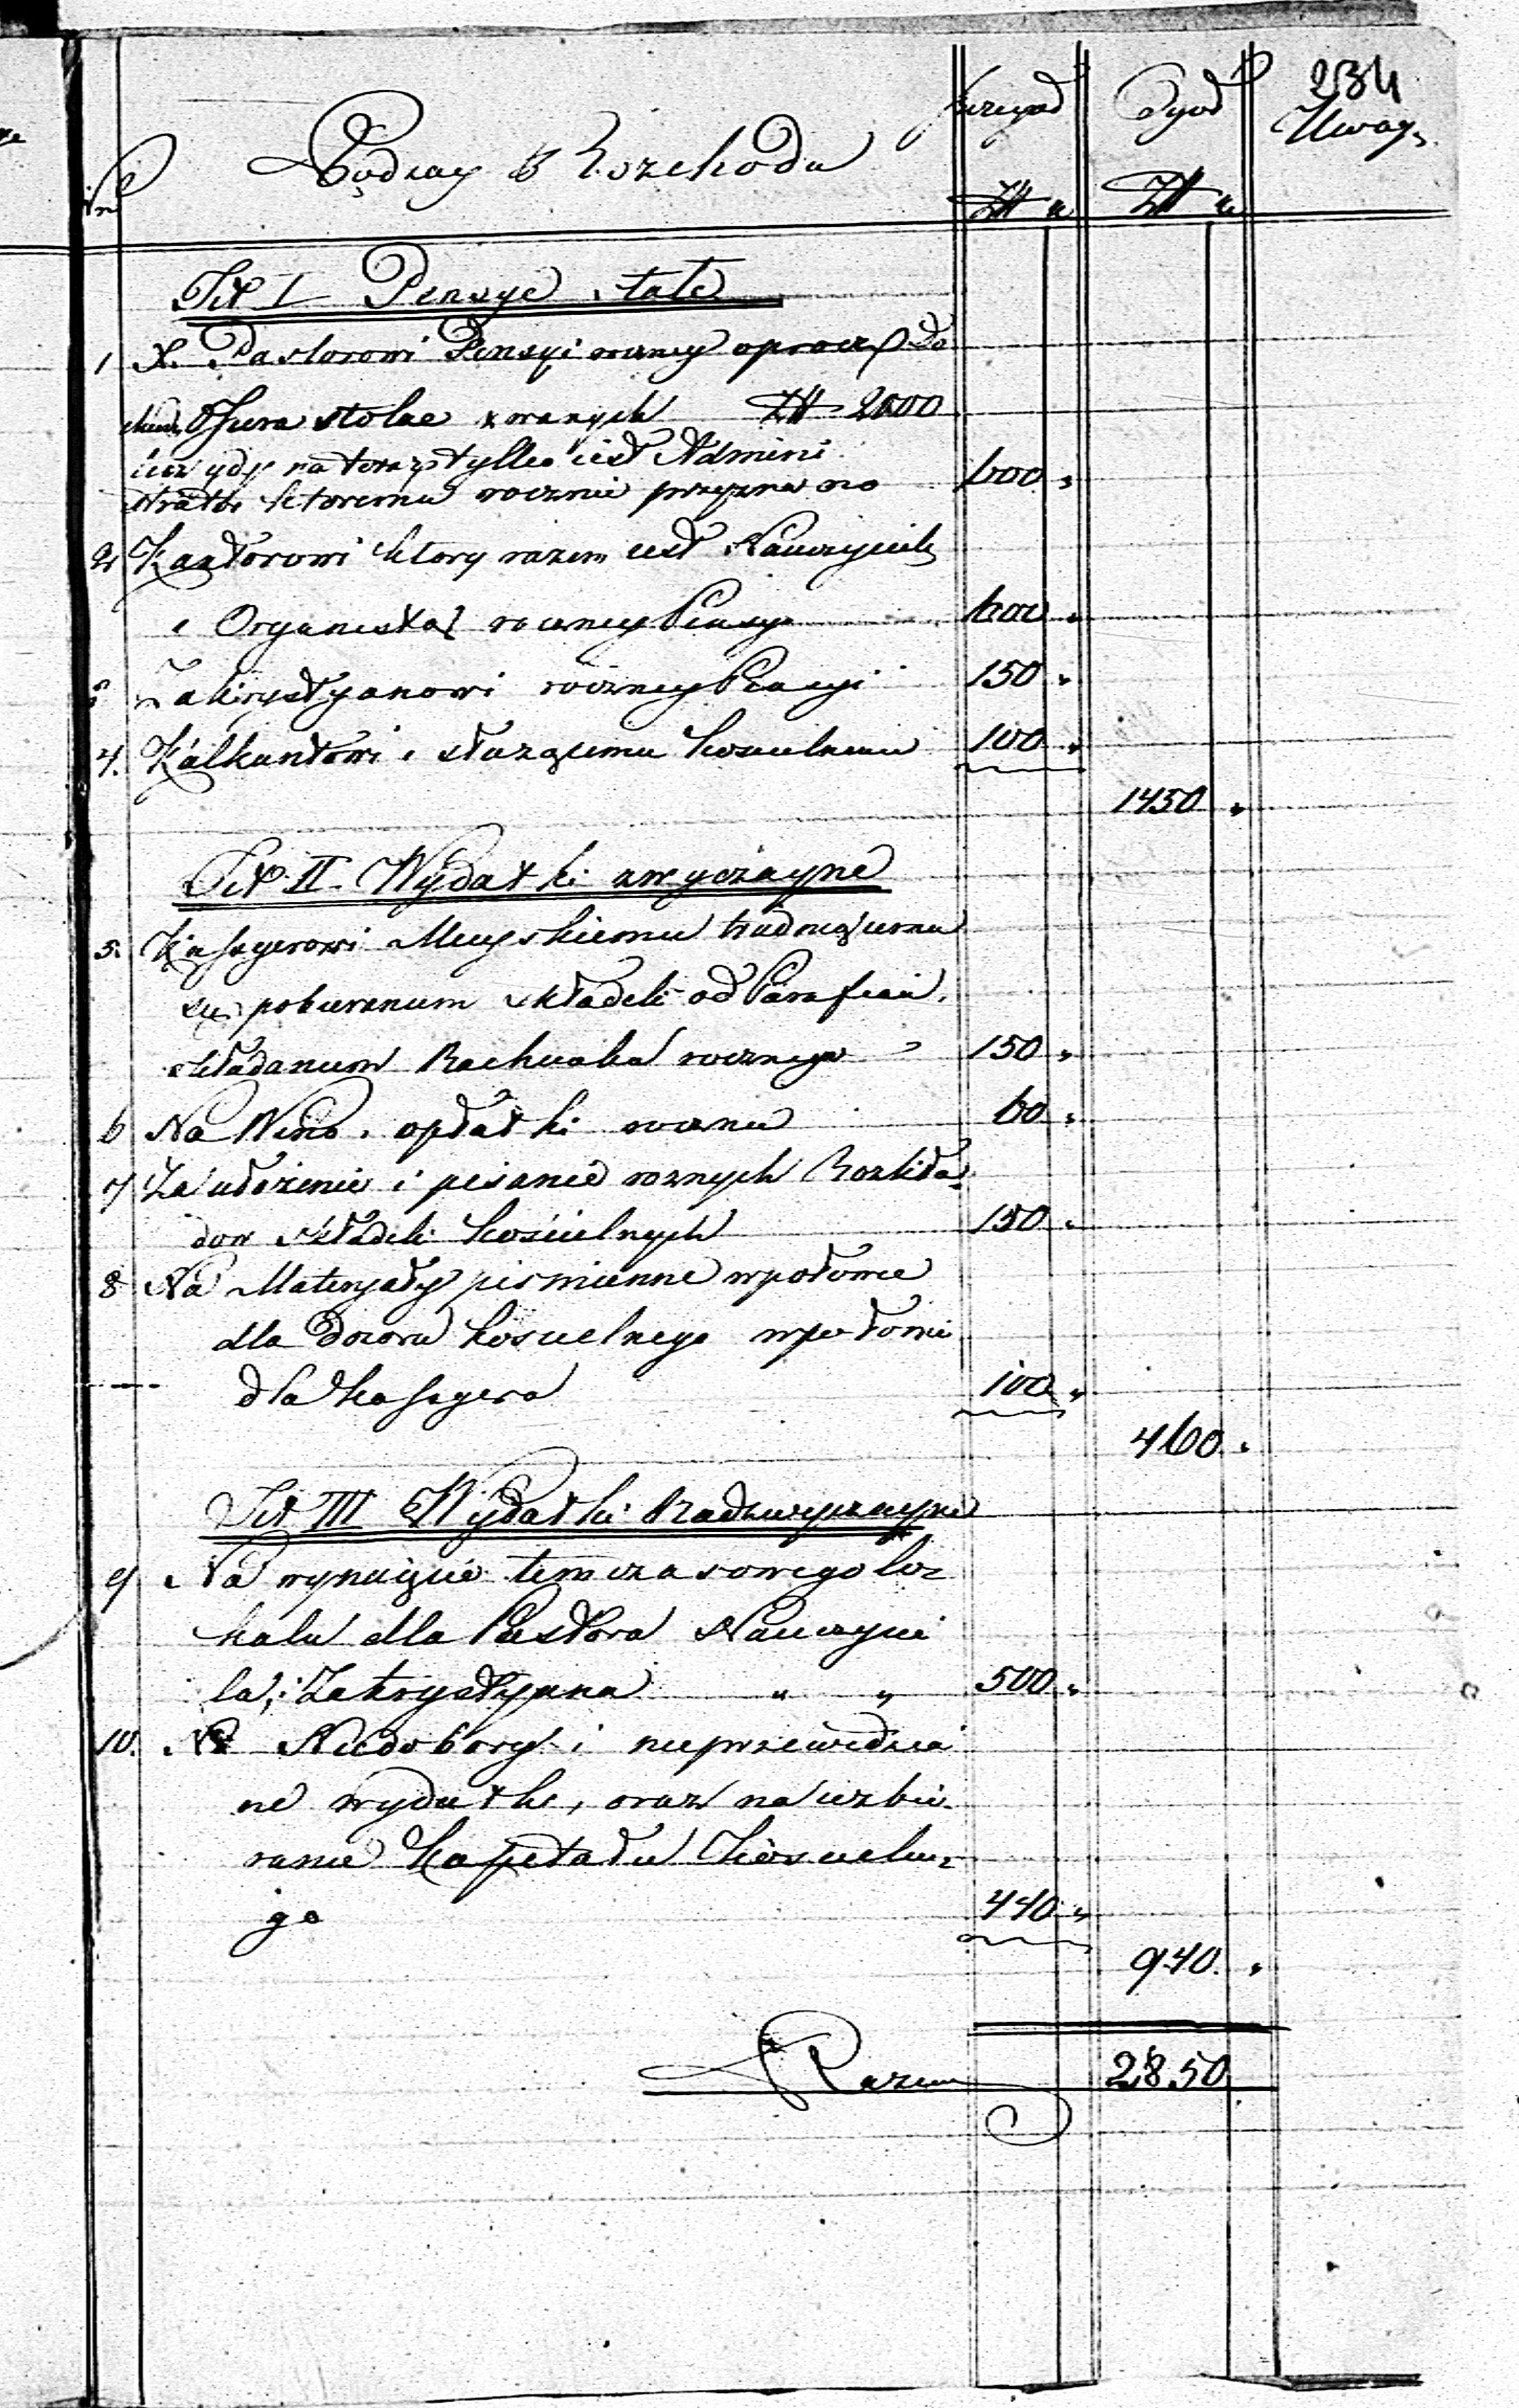 234
Uwag
Nro Rodzay Rozchodu
Zł g Zł g
Tit I Pensye stałe
1 X. Pastorowi Pensyi roczney oprocz Do
chod. Jura stolae zwanych Zł 2000
lecz gdy na teraz tylko iest Admini
strator ktoremu rocznie przyznano 600 "
2 Kantorowi ktory razem iest Nauczyciel
i Organistą roczney Pensyi 600 "
3 Zakrystyanowi roczney Pensyi 150 "
4. Kalkantowi i słuzącemu koscielnemu 100 "
1450 "
Tit II Wydatki zwyczayne
5. Kassyerowi Mieyskiemu trudniącemu
się pobieraniem składek od Parafian,
składaniem Rachunku rocznego 150 "
6 Na Wino i opłatki rocznie 60 "
7 Za ułożenie i pisanie roznych Rozkła-
dow składek kościelnych 150 "
8 Na Materyały pismienne wpołowie
dla Dozoru koscielnego wpołowie
dla Kassyera 100 "
460 "
Tit III Wydatki Nadzwyczayne
9 Na wynaięcie temczasowego lo-
kalu dla Pastora Nauczycie
la, i Zakrystyana " " 500 "
10. Na Niedobory i nieprzewidzia
ne wydatki, oraz na uzbie-
ranie Kapitału Koscielne-
go 440 "
940. "
Razem 2850